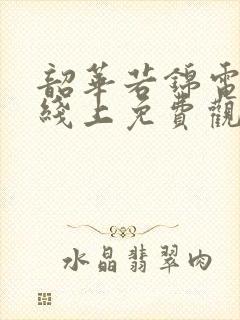 韶華若錦電
綫上免費觀
水晶翡翠肉